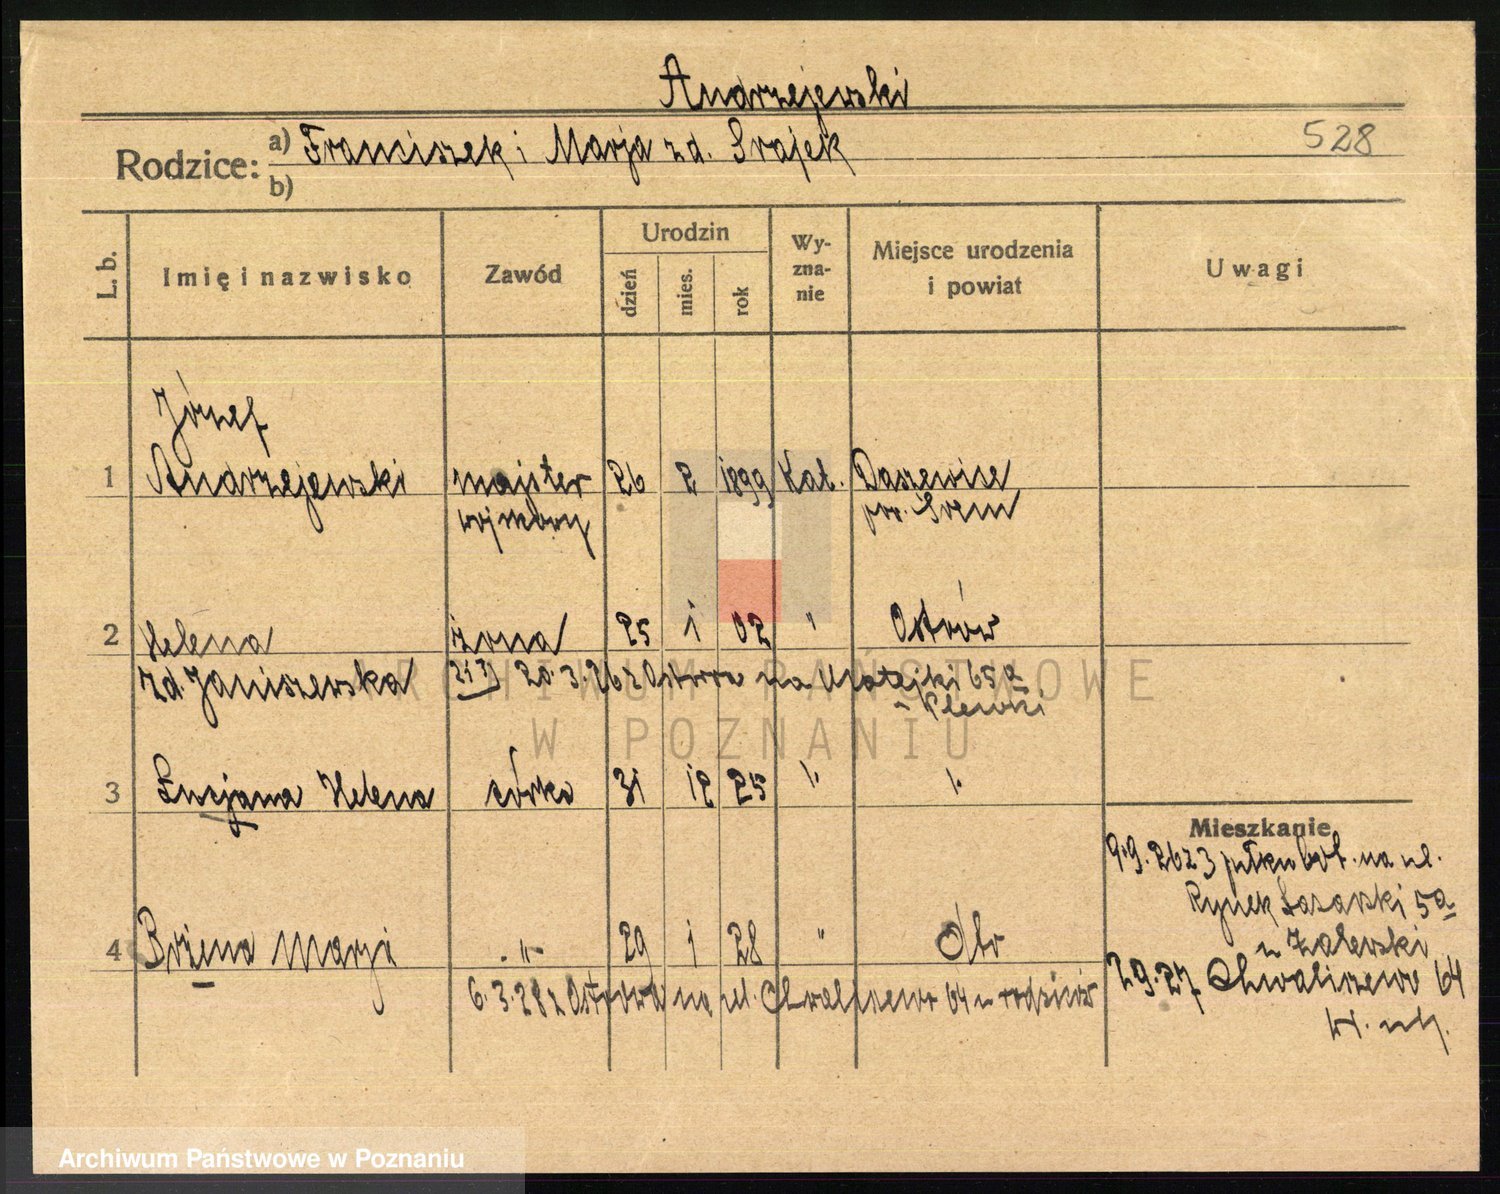 Andrzejewski
528
Rodzice: a) Franciszek i Marja zd. Srajek
b)
L. b. Imię i nazwisko Zawód Urodzin dzień mies. rok Wy-zna-nie Miejsce urodzenia i powiat Uwagi
Józef
1 Andrzejewski majster 26 2 1899 Kat. Daszewice
pow. Śrem
2 Helena żona 25 i 02 " Ostrów
zd. Janiszewska 20.3.26 z Ostrowa na Matejki 65a
3 Lucjana Helena córka 31 12 25 " "
Mieszkanie
9.9.26 z 3 pułku lot. na ul.
Rynek Łazarski 5a
u Zalewski
4 Bożena Marja " 29 i 28 " Ostr
29.27 Chwaliszewo 64
6.3.28 z Ostrowa na ul. Chwaliszewo 64 u rodziców
ARCHIWUM PAŃSTWOWE
W POZNANIU
Archiwum Państwowe w Poznaniu